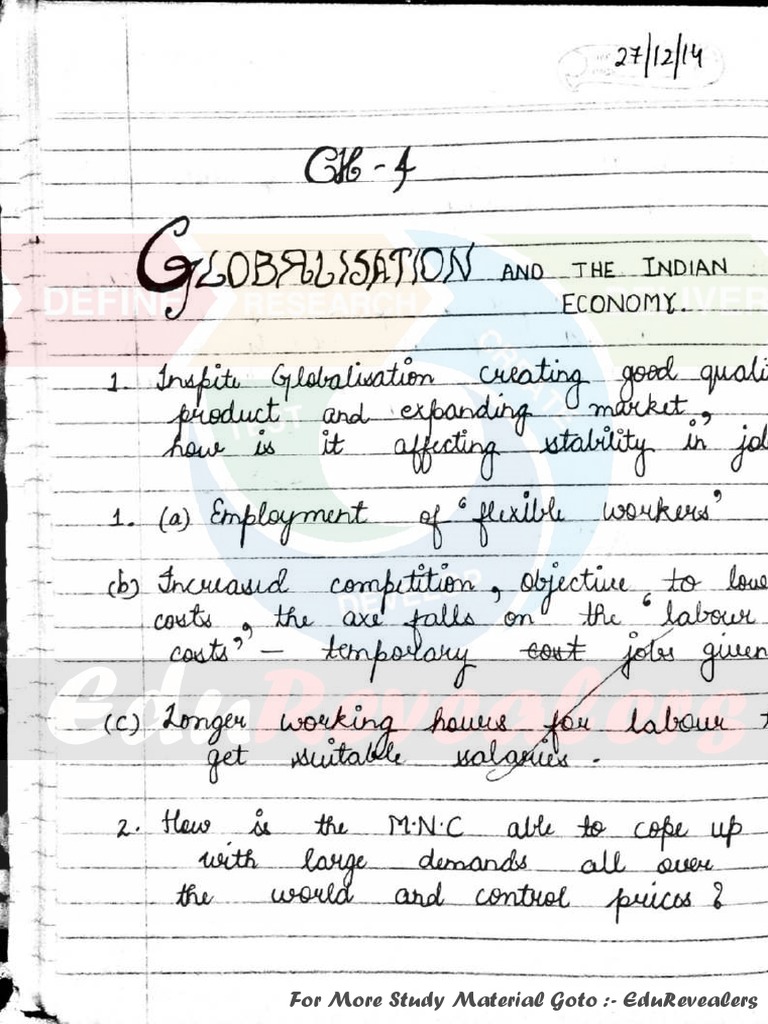 27/12/14
CH - 4
GLOBALISATION AND THE INDIAN
ECONOMY.
1. Inspite Globalisation creating good quali
product and expanding market,
how is it affecting stability in job
1. (a) Employment of "flexible workers"
(b) Increased competition, objective to lowe
costs, the axe falls on the "labour
costs" – temporary cost jobs given
(c) Longer working hours for labour t
get suitable salaries.
2. How is the M.N.C able to cope up
with large demands all over
the world and control prices?
DEFINE RESEARCH CREATE DELIVER
TEST DEVELOP
EduRevealers
For More Study Material Goto :- EduRevealers